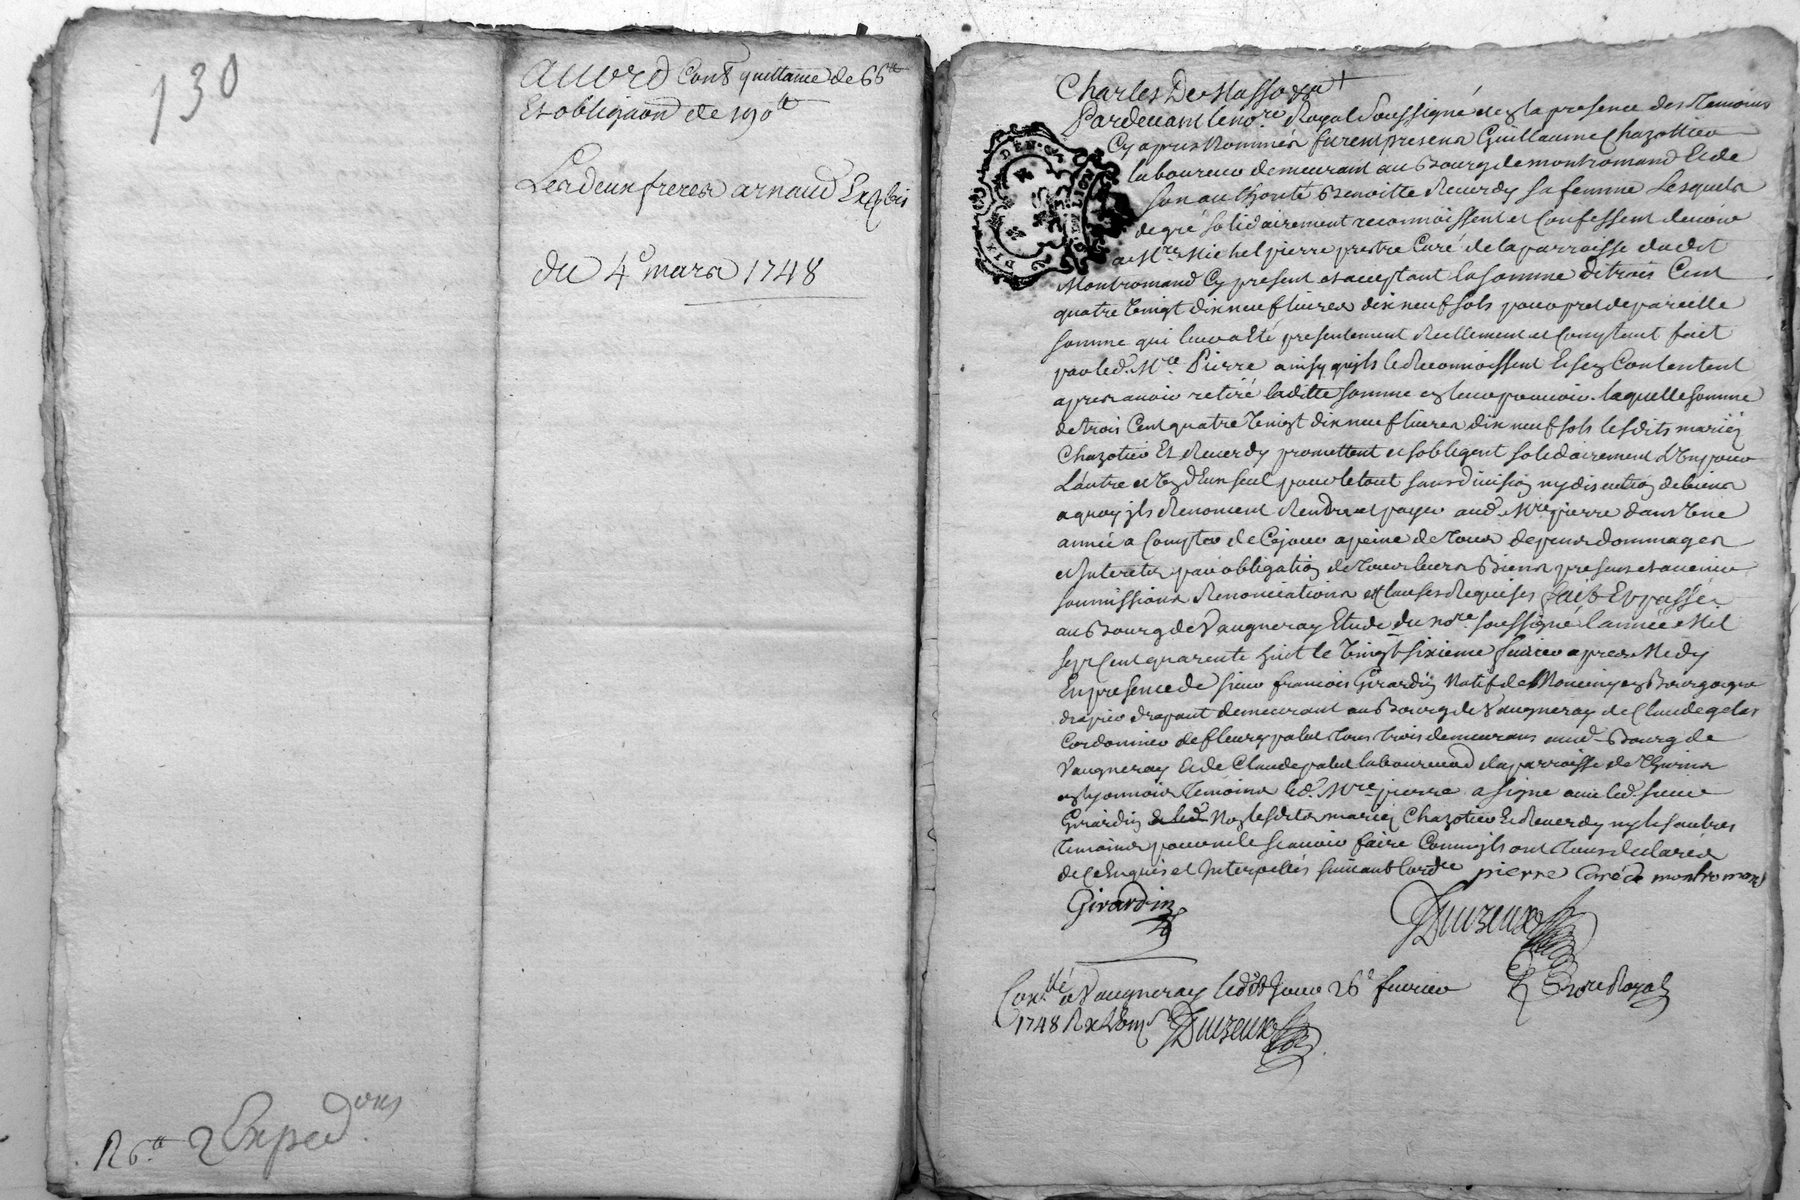 130
accord Cont quittance de 66ᵗᵗ
Et obligaon de 190ᵗᵗ
Les deux freres arnaud
du 4ᵉ mars 1748
R 6ᵗᵗ 2 Expedᵒⁿˢ
Charles De Masso
Pardevant le noʳᵉ Royal Soussigné et en la presence des temoins
Cy apres Nommés furent presens Guillaume Chazottier
laboureur demeurant au Bourg de montromand Et de
son authorité Benoitte Reverdy sa femme Lesquels
de gré solidairement reconnoissent et Confessent devoir
a Mʳᵉ Michel pierre prestre Curé de la parroisse dudit
Montromand Cy present et acceptant la somme de trois Cent
quatre vingt dix neuf livres dix neuf sols pour pret de pareille
somme qui leur a Eté presentement Reellement et Comptant fait
par led. Mʳᵉ Pierre ainsy qu'ils le Reconnoissent Et s'en Contentent
apres avoir retiré laditte somme en leur pouvoir. laquelle somme
de trois Cent quatre vingt dix neuf livres dix neuf sols lesdits mariés
Chazotier Et Reverdy promettent et s'obligent solidairement L'un pour
L'autre et un d'Eux seul pour le tout sans division ny discution de biens
a quoy ils Renoncent Rendre et payer aud. Mʳᵉ pierre dans une
année a Compter de Ce jour a peine de tous depens dommages
et Interets par obligation de tous leurs Biens presens et avenir
soumissions Renonciations et Clauses Requises fait Et passé
au Bourg de Vaugneray Etude du noʳᵉ soussigné l'année Mil
sept Cent quarente huit le vingt sixieme fevrier apres Midy
En presence de sieur francois Girardin Natif de en Bourgogne
drapier drapant demeurant au Bourg de Vaugneray de Claude gelas
Cordonnier de fleury palut tous trois demeurans aud. Bourg de
Vaugneray Et de Claude palut laboureur de la parroisse de Thurins
en lyonnois temoins led. Mʳᵉ pierre a signé avec led. sieur
Girardin Non lesdits mariés Chazotier Et Reverdy ny les autres
temoins pour ne le sçavoir faire Comm'ils ont tous declarés
de Ce Enquis et Interpellés suivant lordʳᵉ pierre Curé de montromand
Girardin
Duizeux
Noʳᵉ Royal
Conᵗˡᵉ a Vaugneray led. Jour 26ᵉ fevrier
1748 R Duizeux